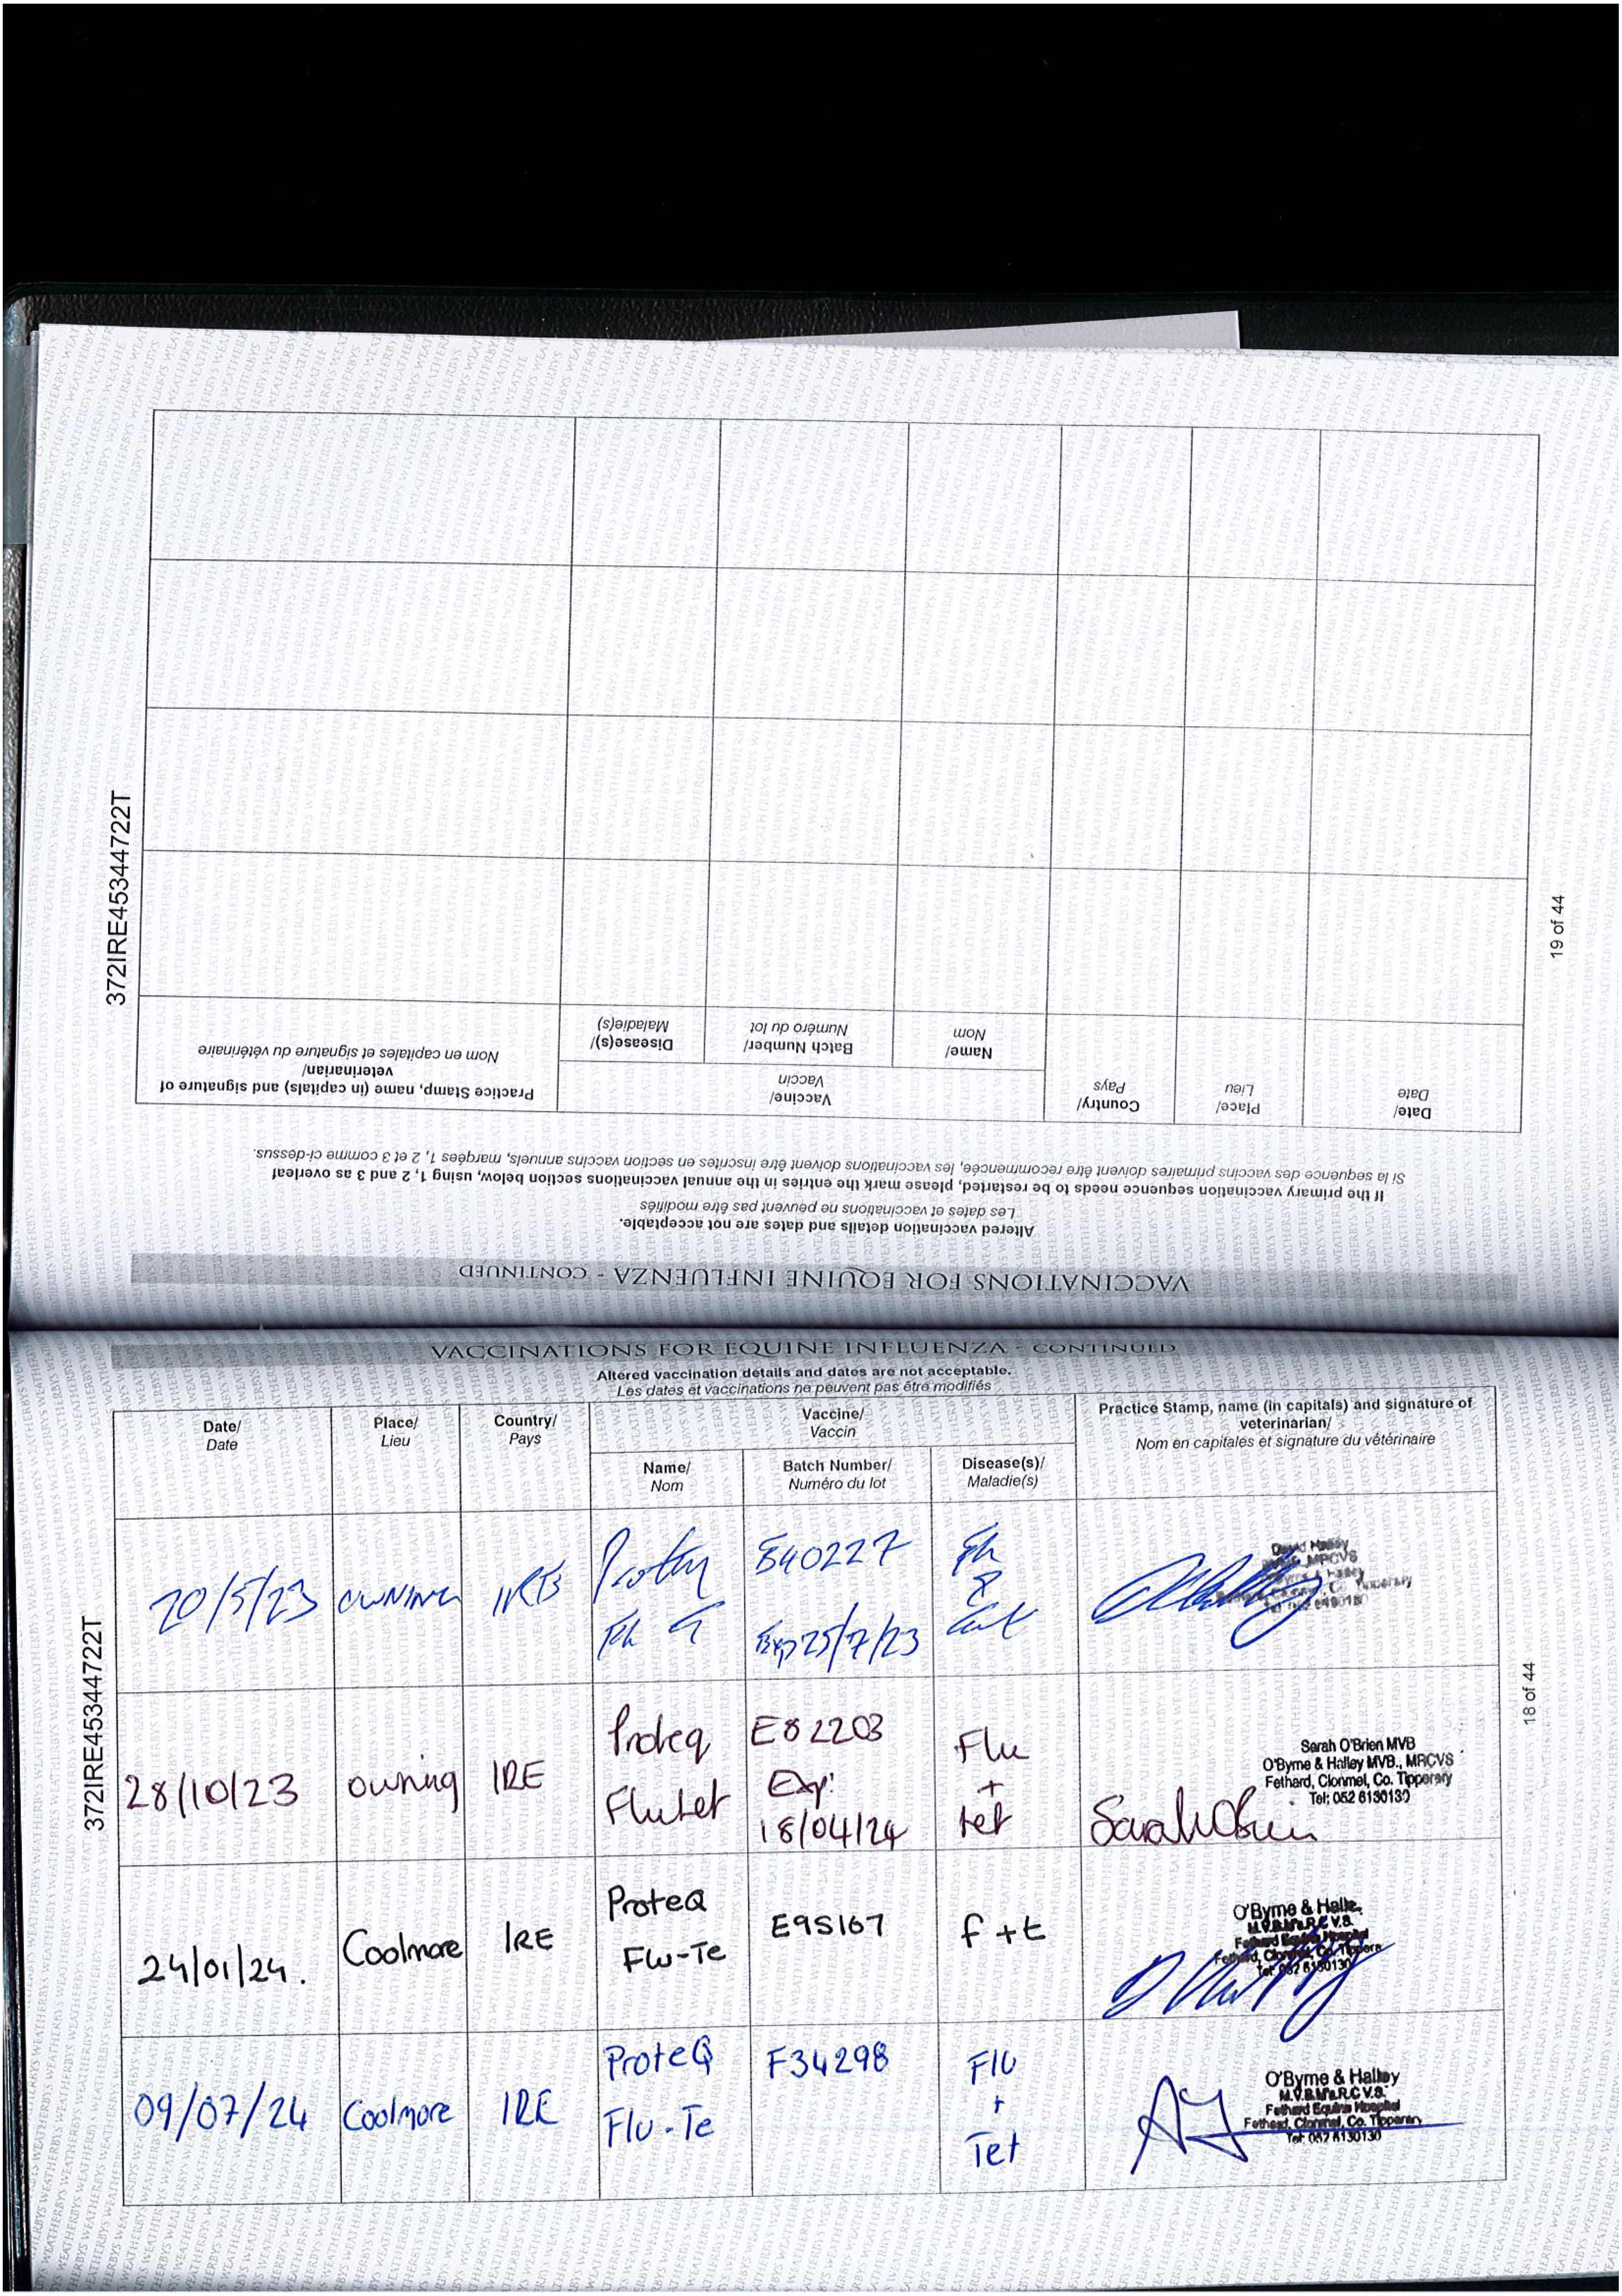 372IRE45344722T
19 of 44
VACCINATIONS FOR EQUINE INFLUENZA - CONTINUED
Altered vaccination details and dates are not acceptable.
Les dates et vaccinations ne peuvent pas être modifiés
If the primary vaccination sequence needs to be restarted, please mark the entries in the annual vaccinations section below, using 1, 2 and 3 as overleaf
Si la sequence des vaccins primaires doivent être recommencée, les vaccinations doivent être inscrites en section vaccins annuels, marqées 1, 2 et 3 comme ci-dessus.
Date/
Date
Place/
Lieu
Country/
Pays
Vaccine/
Vaccin
Name/
Nom
Batch Number/
Numéro du lot
Disease(s)/
Maladie(s)
Practice Stamp, name (in capitals) and signature of
veterinarian/
Nom en capitales et signature du vétérinaire
VACCINATIONS FOR EQUINE INFLUENZA - CONTINUED
Altered vaccination details and dates are not acceptable.
Les dates et vaccinations ne peuvent pas être modifiés
Date/
Date
Place/
Lieu
Country/
Pays
Vaccine/
Vaccin
Name/
Nom
Batch Number/
Numéro du lot
Disease(s)/
Maladie(s)
Practice Stamp, name (in capitals) and signature of
veterinarian/
Nom en capitales et signature du vétérinaire
20/5/23 OWNING IRE
E40227
Exp 25/7/23
David Halley
MRCVS
28/10/23 owning IRE
Proteq
Flutet
E82203
Exp:
18/04/24
Flu
+
tet
Sarah O'Brien MVB
O'Byrne & Halley MVB., MRCVS
Fethard, Clonmel, Co. Tipperary
Tel: 052 6130130
Sarah O'Brien
24/01/24. Coolmore IRE
ProteQ
Flu-Te
E95167
f + t
O'Byrne & Halle
M.V.B M.R.C V.S.
Fethard Equine Hospital
Fethard, Clonmel, Co. Tippera
Tel: 052 6130130
09/07/24 Coolmore IRE
ProteQ
Flu-Te
F34298
Flu
+
Tet
AJ
O'Byrne & Halley
M.V.B M.R.C V.S.
Fethard Equine Hospital
Fethard, Clonmel, Co. Tipperary
Tel: 052 6130130
372IRE45344722T
18 of 44